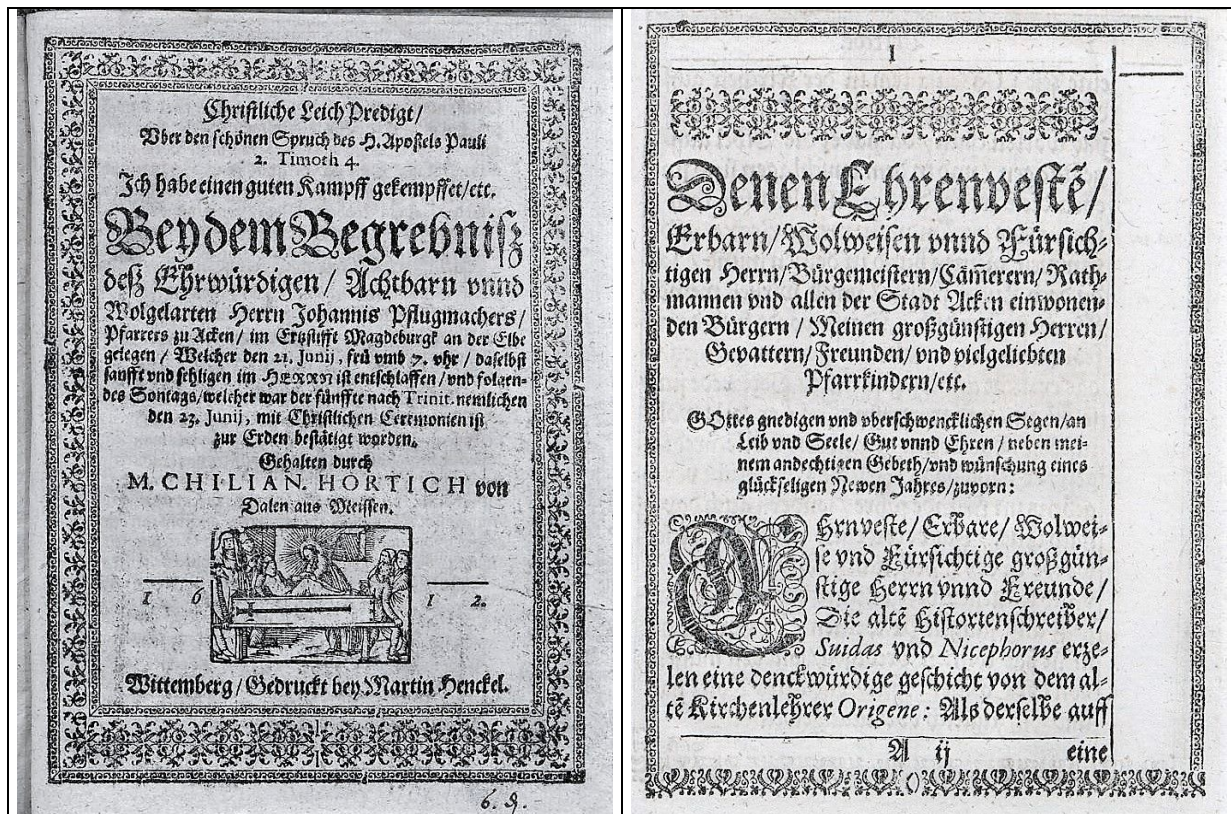 Christliche Leich Predigt/
Vber den schönen Spruch des H. Apostels Pauli
2. Timoth 4.
Ich habe einen guten Kampff gekempffet/etc.
Bey dem Begrebnisz
deß Ehrwürdigen / Achtbarn vnnd
Wolgelarten Herrn Johannis Pflugmachers /
Pfarrers zu Acken / im Ertzstifft Magdeburgk an der Elbe
gelegen / Welcher den 21. Junij, frü vmb 7. vhr / daselbst
sanfft vnd sehligen im HERRN ist entschlaffen / vnd folgen-
des Sontags/welcher war der fünffte nach Trinit. nemlichen
den 23. Junij, mit Christlichen Ceremonien ist
zur Erden bestätigt worden.
Gehalten durch
M. CHILIAN. HORTICH von
Dalen aus Meissen.
1 6 1 2.
Wittemberg / Gedruckt bey Martin Henckel.
6. 9.
I
Denen Ehrenvestē/
Erbarn/Wolweisen vnnd Fürsich-
tigen Herrn/Bürgemeistern/Cām̄erern/Rath-
mannen vnd allen der Stadt Acken einwonen-
den Bürgern / Meinen großgünstigen Herren/
Gevattern/Freunden/ vnd vielgeliebten
Pfarrkindern/etc.
GOttes gnedigen vnd vberschwencklichen Segen/an
Leib vnd Seele/ Gut vnnd Ehren / neben mei-
nem andechtigen Gebeth/vnd wünschung eines
glückseligen Newen Jahres/zuvorn:
Ehrnveste/ Erbare/ Wolwei-
se vnd Fürsichtige großgün-
stige Herrn vnnd Freunde/
Die altē Historienschreiber/
Suidas vnd Nicephorus erze-
len eine denckwürdige geschicht von dem al-
tē Kirchenlehrer Origene: Als derselbe auff
A ij eine